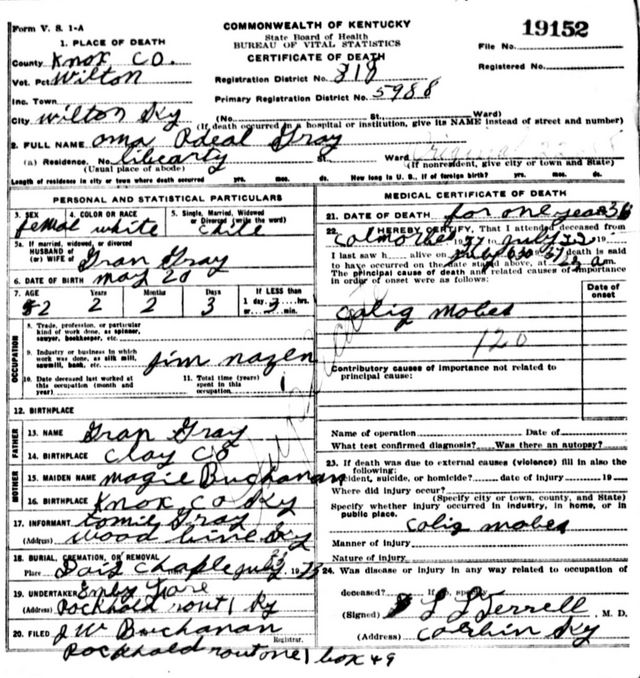 Form V. S. 1-A
COMMONWEALTH OF KENTUCKY
State Board of Health
BUREAU OF VITAL STATISTICS
CERTIFICATE OF DEATH
19152
File No.
Registered No.
1. PLACE OF DEATH
County Knox CO.
Vot. Pct. Wilton
Inc. Town
City Wilton Ky
Registration District No. 818
Primary Registration District No. 5988
(No. St., Ward)
(If death occurred in a hospital or institution, give its NAME instead of street and number)
2. FULL NAME oma Gray
(a) Residence. No. St. Ward
(Usual place of abode) (If nonresident, give city or town and State)
Length of residence in city or town where death occurred yrs. mos. ds. How long in U. S., if of foreign birth? yrs. mos. ds.
PERSONAL AND STATISTICAL PARTICULARS
3. SEX 4. COLOR OR RACE 5. Single, Married, Widowed or Divorced (write the word)
femal white
5a. If married, widowed, or divorced
HUSBAND of
(or) WIFE of Gran Gray
6. DATE OF BIRTH may 20
7. AGE Years Months Days If LESS than
2 2 3 1 day hrs.
or min.
OCCUPATION
8. Trade, profession, or particular
kind of work done, as spinner,
sawyer, bookkeeper, etc.
9. Industry or business in which
work was done, as silk mill,
sawmill, bank, etc.
10. Date deceased last worked at
this occupation (month and
year)
11. Total time (years)
spent in this
occupation 1
12. BIRTHPLACE
FATHER
13. NAME Gran Gray
14. BIRTHPLACE Clay CO
MOTHER
15. MAIDEN NAME magie Buchanan
16. BIRTHPLACE Knox CO Ky
17. INFORMANT Gray
(Address) wood bine Ky
18. BURIAL, CREMATION, OR REMOVAL
Place Chaple july
19. UNDERTAKER
(Address) Rockhold rout 1 Ky
20. FILED J W Buchanan
Registrar.
Rockhold rout one 1 box 49
MEDICAL CERTIFICATE OF DEATH
21. DATE OF DEATH for one year
22. I HEREBY CERTIFY, That I attended deceased from
37 to July 22, 19
I last saw h alive on 37 death is said
to have occurred on the date stated above, at am.
The principal cause of death and related causes of importance
in order of onset were as follows:
Date of
onset
colig mobes
120
Contributory causes of importance not related to
principal cause:
Name of operation Date of
What test confirmed diagnosis? Was there an autopsy?
23. If death was due to external causes (violence) fill in also the
following:
Accident, suicide, or homicide? date of injury 19
Where did injury occur?
(Specify city or town, county, and State)
Specify whether injury occurred in industry, in home, or in
public place.
colig mobes
Manner of injury
Nature of injury
24. Was disease or injury in any way related to occupation of
deceased? If so, specify
(Signed) Terrell M. D.
(Address) Corbin Ky